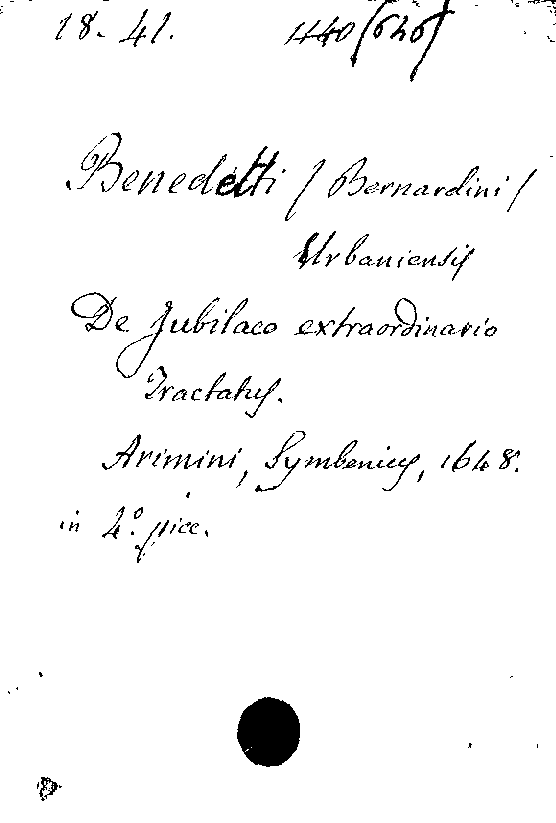 18. 41. 1440 (646)
Benedetti / Bernardini /
Urbaniensis
De Jubilaeo extraordinario
Tractatus.
Arimini, Symbenius, 1648.
in 4.º picc.